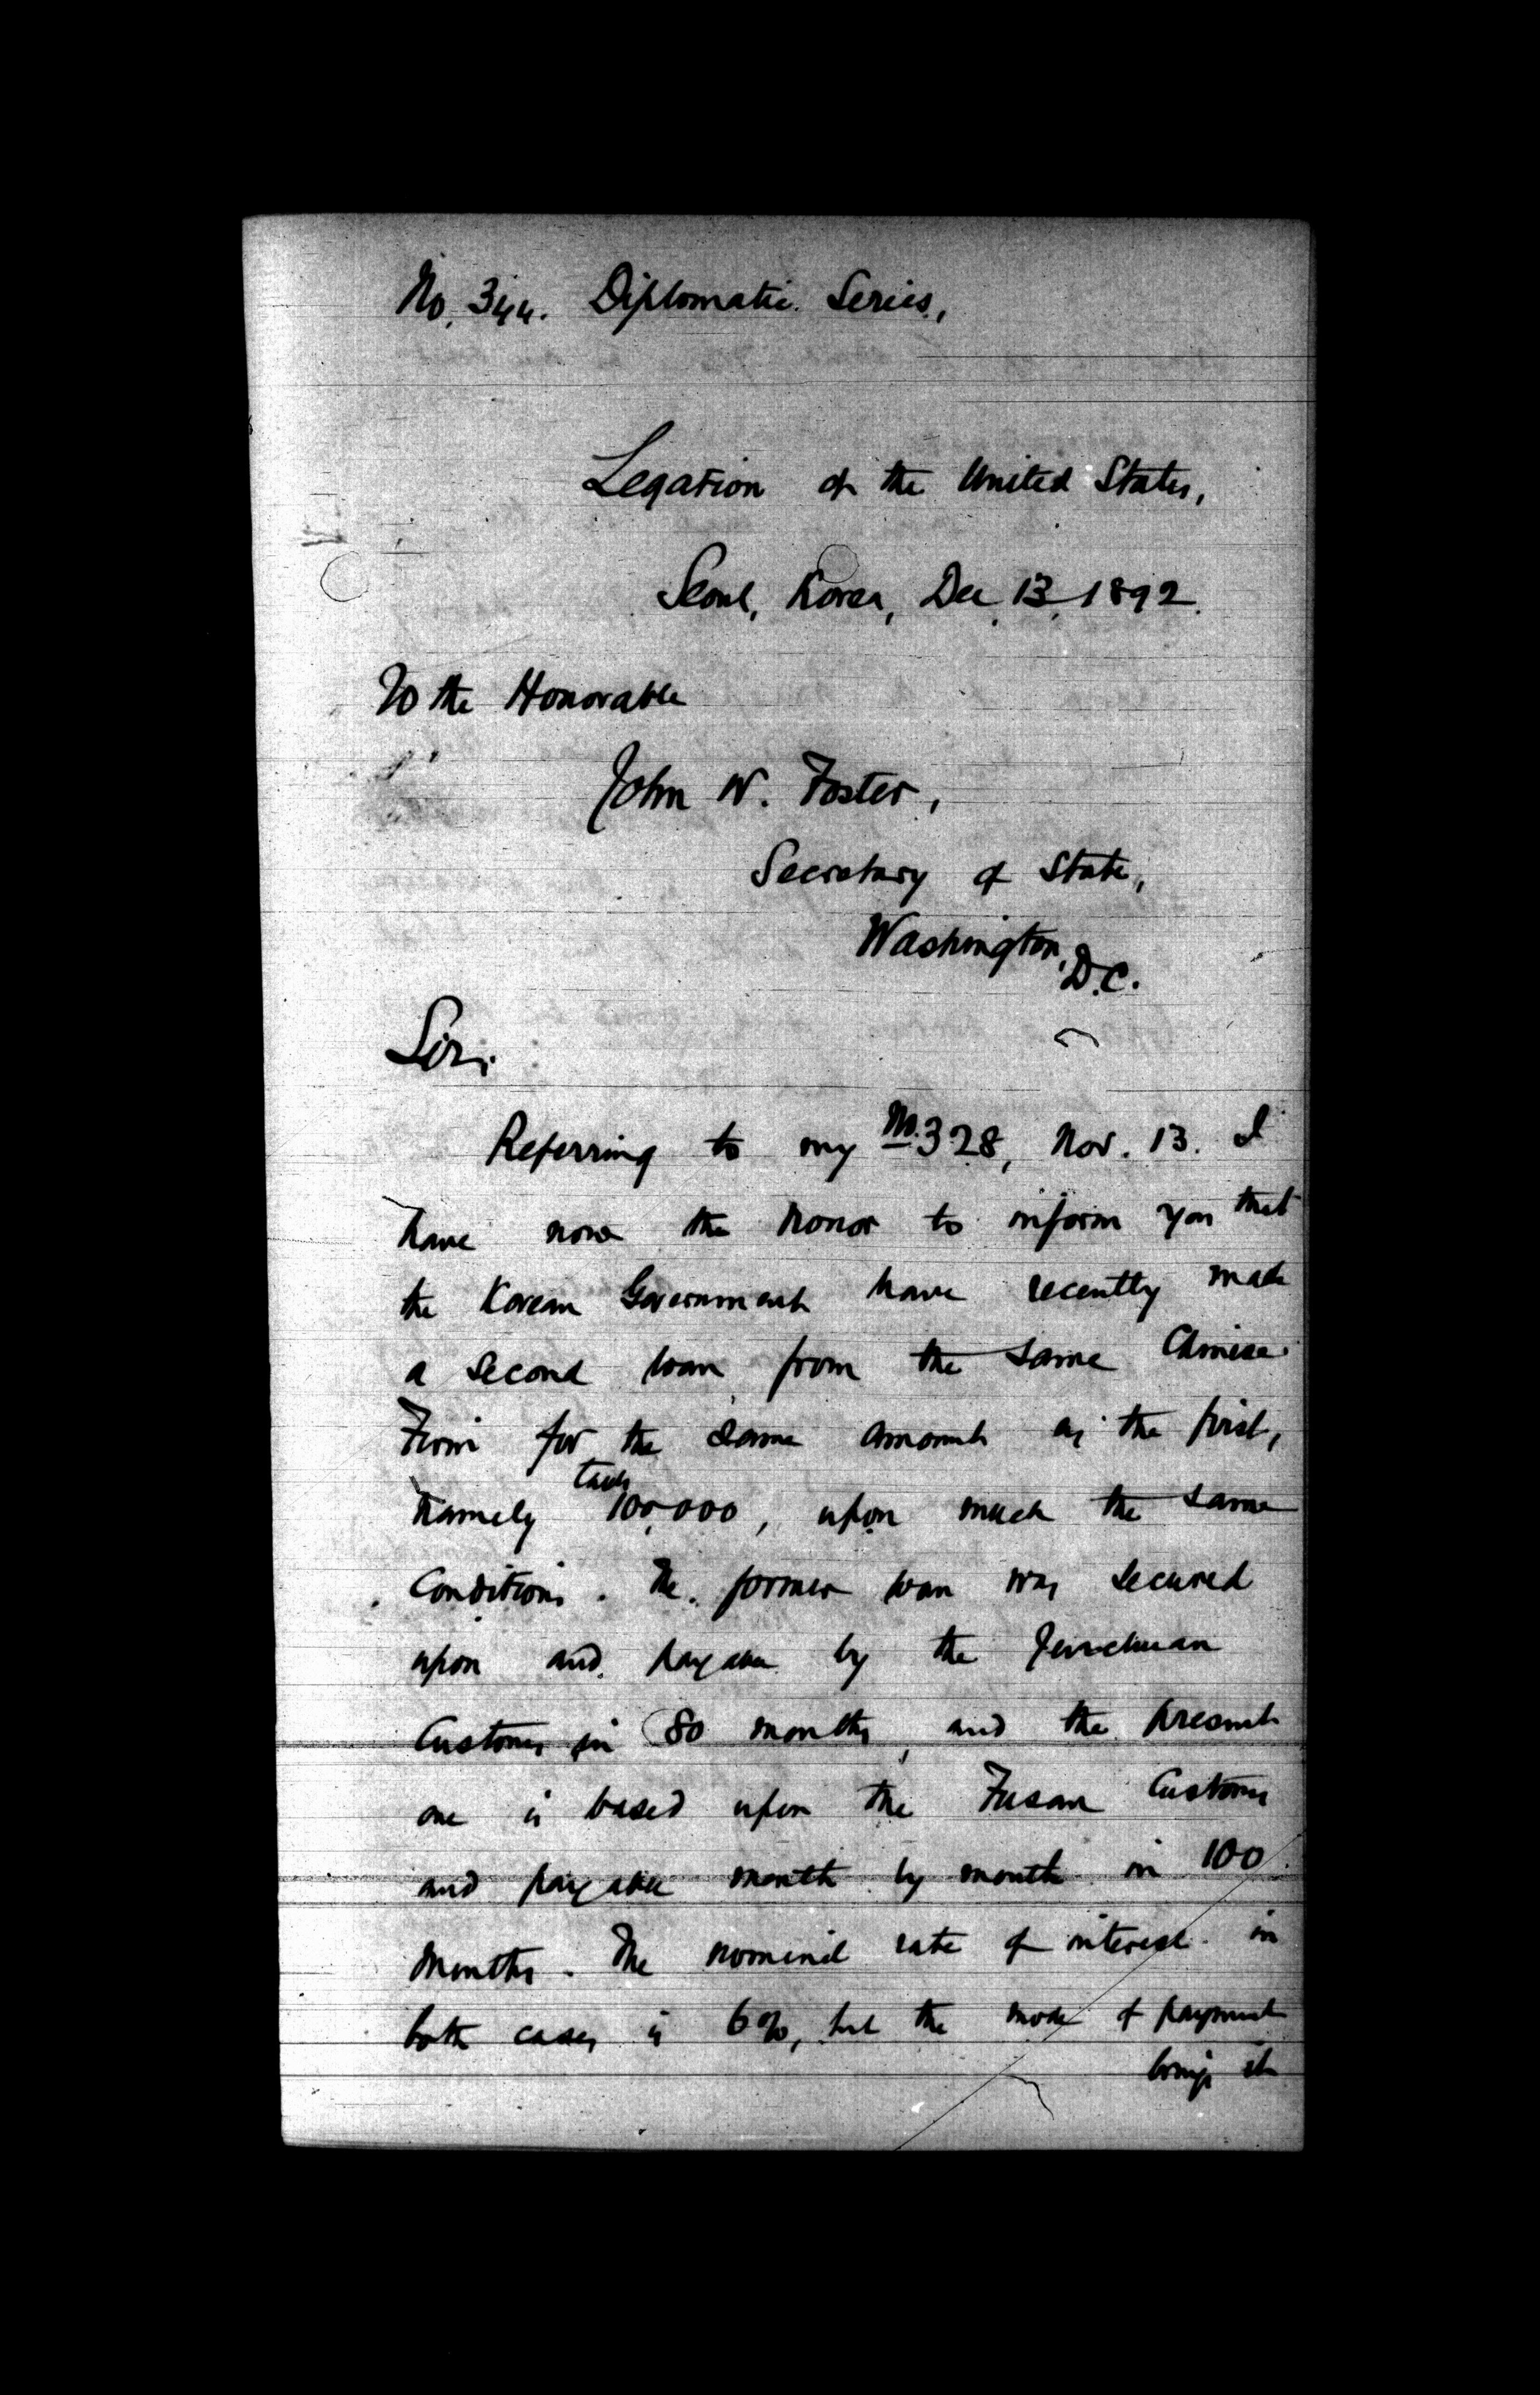 No. 344. Diplomatic Series,
Legation of the United States,
Seoul, Korea, Dec. 13, 1892.
To the Honorable
John W. Foster,
Secretary of State,
Washington,
D.C.
Sir:
Referring to my No. 328, Nov. 13. I
have now the honor to inform you that
the Korean Government have recently made
a second loan from the same Chinese
Firm for the same amount as the first,
taels
namely 100,000, upon much the same
Conditions. The former loan was secured
upon and payable by the Jenchuan
Customs in 80 months, and the present
one is based upon the Fusan Customs
and payable month by month in 100
months. The nominal rate of interest in
both cases is 6%, but the mode of payment
brings it